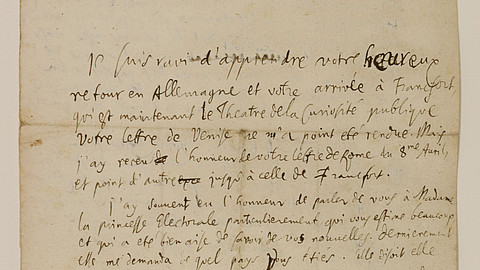 Je suis ravi d'apprendre votre heureux
retour en Allemagne et votre arrivée à Francfort,
qui est maintenant le Theatre de la Curiosité publique
Votre lettre de Venise ne m'a point eté rendue. Mais
j'ay receu l'honneur de votre lettre de Rome du 8me Avril,
et point d'autre jusqu'à celle de Francfort.
j'ay souvent eu l'honneur de parler de vous à Madame
la princesse Electorale particulierement, qui vous estime beaucoup
et qui a eté bien aise de savoir de vos nouvelles. dernierement
elle me demanda de quel pays vous eties. elle disoit elle